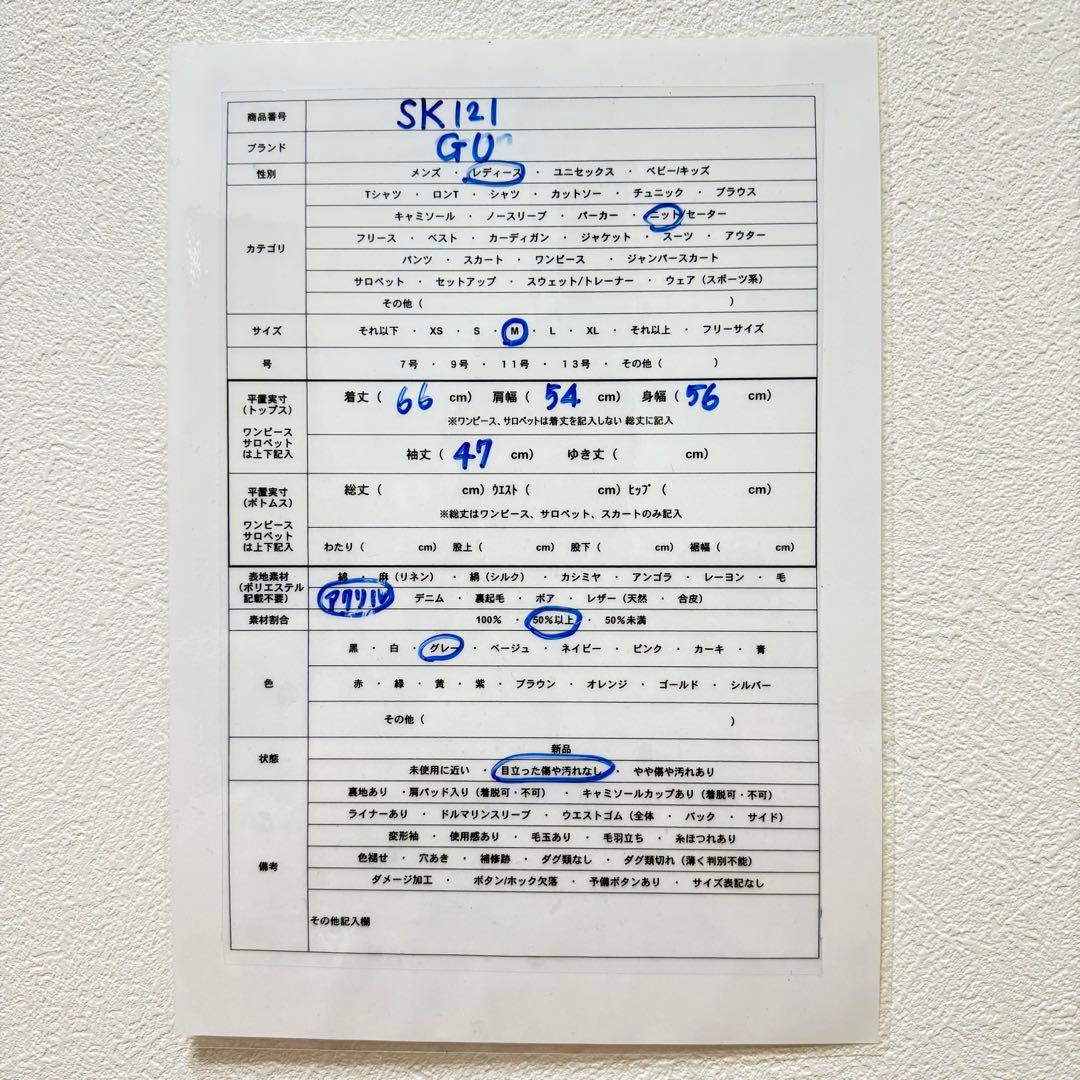 商品番号 SK121
ブランド GU
性別 メンズ ・ レディース ・ ユニセックス ・ ベビー/キッズ
Tシャツ ・ ロンT ・ シャツ ・ カットソー ・ チュニック ・ ブラウス
キャミソール ・ ノースリーブ ・ パーカー ・ ニット/セーター
カテゴリ フリース ・ ベスト ・ カーディガン ・ ジャケット ・ スーツ ・ アウター
パンツ ・ スカート ・ ワンピース ・ ジャンパースカート
サロペット ・ セットアップ ・ スウェット/トレーナー ・ ウェア(スポーツ系)
その他( )
サイズ それ以下 ・ XS ・ S ・ M ・ L ・ XL ・ それ以上 ・ フリーサイズ
号 7号 ・ 9号 ・ 11号 ・ 13号 ・ その他( )
平置実寸
(トップス)
ワンピース
サロペット
は上下記入
着丈( 66 cm) 肩幅( 54 cm) 身幅( 56 cm)
※ワンピース、サロペットは着丈を記入しない 総丈に記入
袖丈( 47 cm) ゆき丈( cm)
平置実寸
(ボトムス)
ワンピース
サロペット
は上下記入
総丈( cm) ウエスト( cm) ヒップ( cm)
※総丈はワンピース、サロペット、スカートのみ記入
わたり( cm) 股上( cm) 股下( cm) 裾幅( cm)
表地素材
(ポリエステル
記載不要)
綿 ・ 麻(リネン) ・ 絹(シルク) ・ カシミヤ ・ アンゴラ ・ レーヨン ・ 毛
アクリル デニム ・ 裏起毛 ・ ボア ・ レザー(天然 ・ 合皮)
素材割合 100% ・ 50%以上 ・ 50%未満
黒 ・ 白 ・ グレー ・ ベージュ ・ ネイビー ・ ピンク ・ カーキ ・ 青
色 赤 ・ 緑 ・ 黄 ・ 紫 ・ ブラウン ・ オレンジ ・ ゴールド ・ シルバー
その他( )
状態 新品
未使用に近い ・ 目立った傷や汚れなし ・ やや傷や汚れあり
裏地あり ・ 肩パッド入り(着脱可・不可) ・ キャミソールカップあり(着脱可・不可)
ライナーあり ・ ドルマリンスリーブ ・ ウエストゴム(全体 ・ バック ・ サイド)
変形袖 ・ 使用感あり ・ 毛玉あり ・ 毛羽立ち ・ 糸ほつれあり
備考 色褪せ ・ 穴あき ・ 補修跡 ・ タグ類なし ・ タグ類切れ(薄く判別不能)
ダメージ加工 ・ ボタン/ホック欠落 ・ 予備ボタンあり ・ サイズ表記なし
その他記入欄